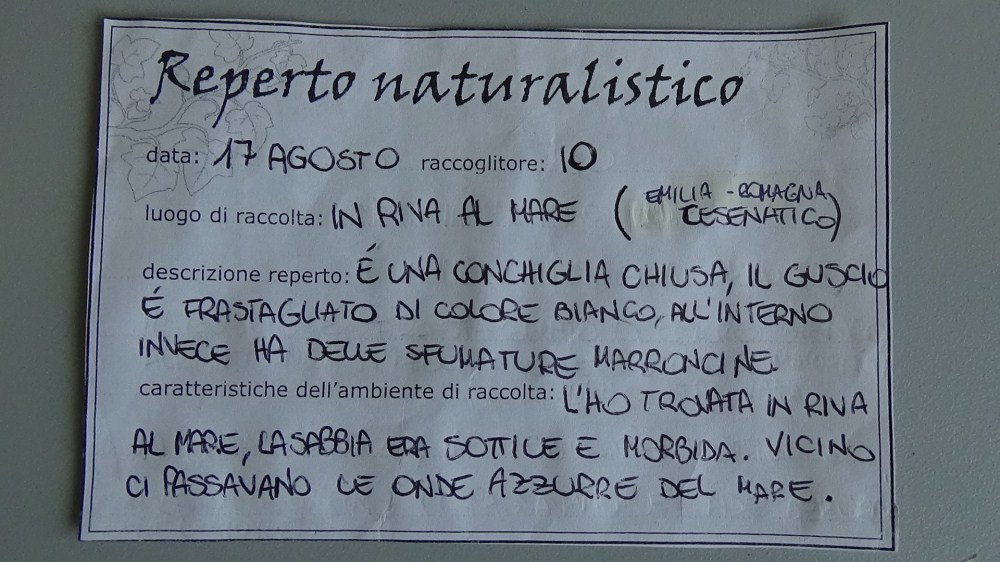 Reperto naturalistico
data: 17 AGOSTO raccoglitore: IO
luogo di raccolta: IN RIVA AL MARE (EMILIA-ROMAGNA
CESENATICO)
descrizione reperto: É UNA CONCHIGLIA CHIUSA, IL GUSCIO
É FRASTAGLIATO DI COLORE BIANCO, ALL'INTERNO
INVECE HA DELLE SFUMATURE MARRONCINE.
caratteristiche dell'ambiente di raccolta: L'HO TROVATA IN RIVA
AL MARE, LA SABBIA ERA SOTTILE E MORBIDA. VICINO
CI PASSAVANO LE ONDE AZZURRE DEL MARE.